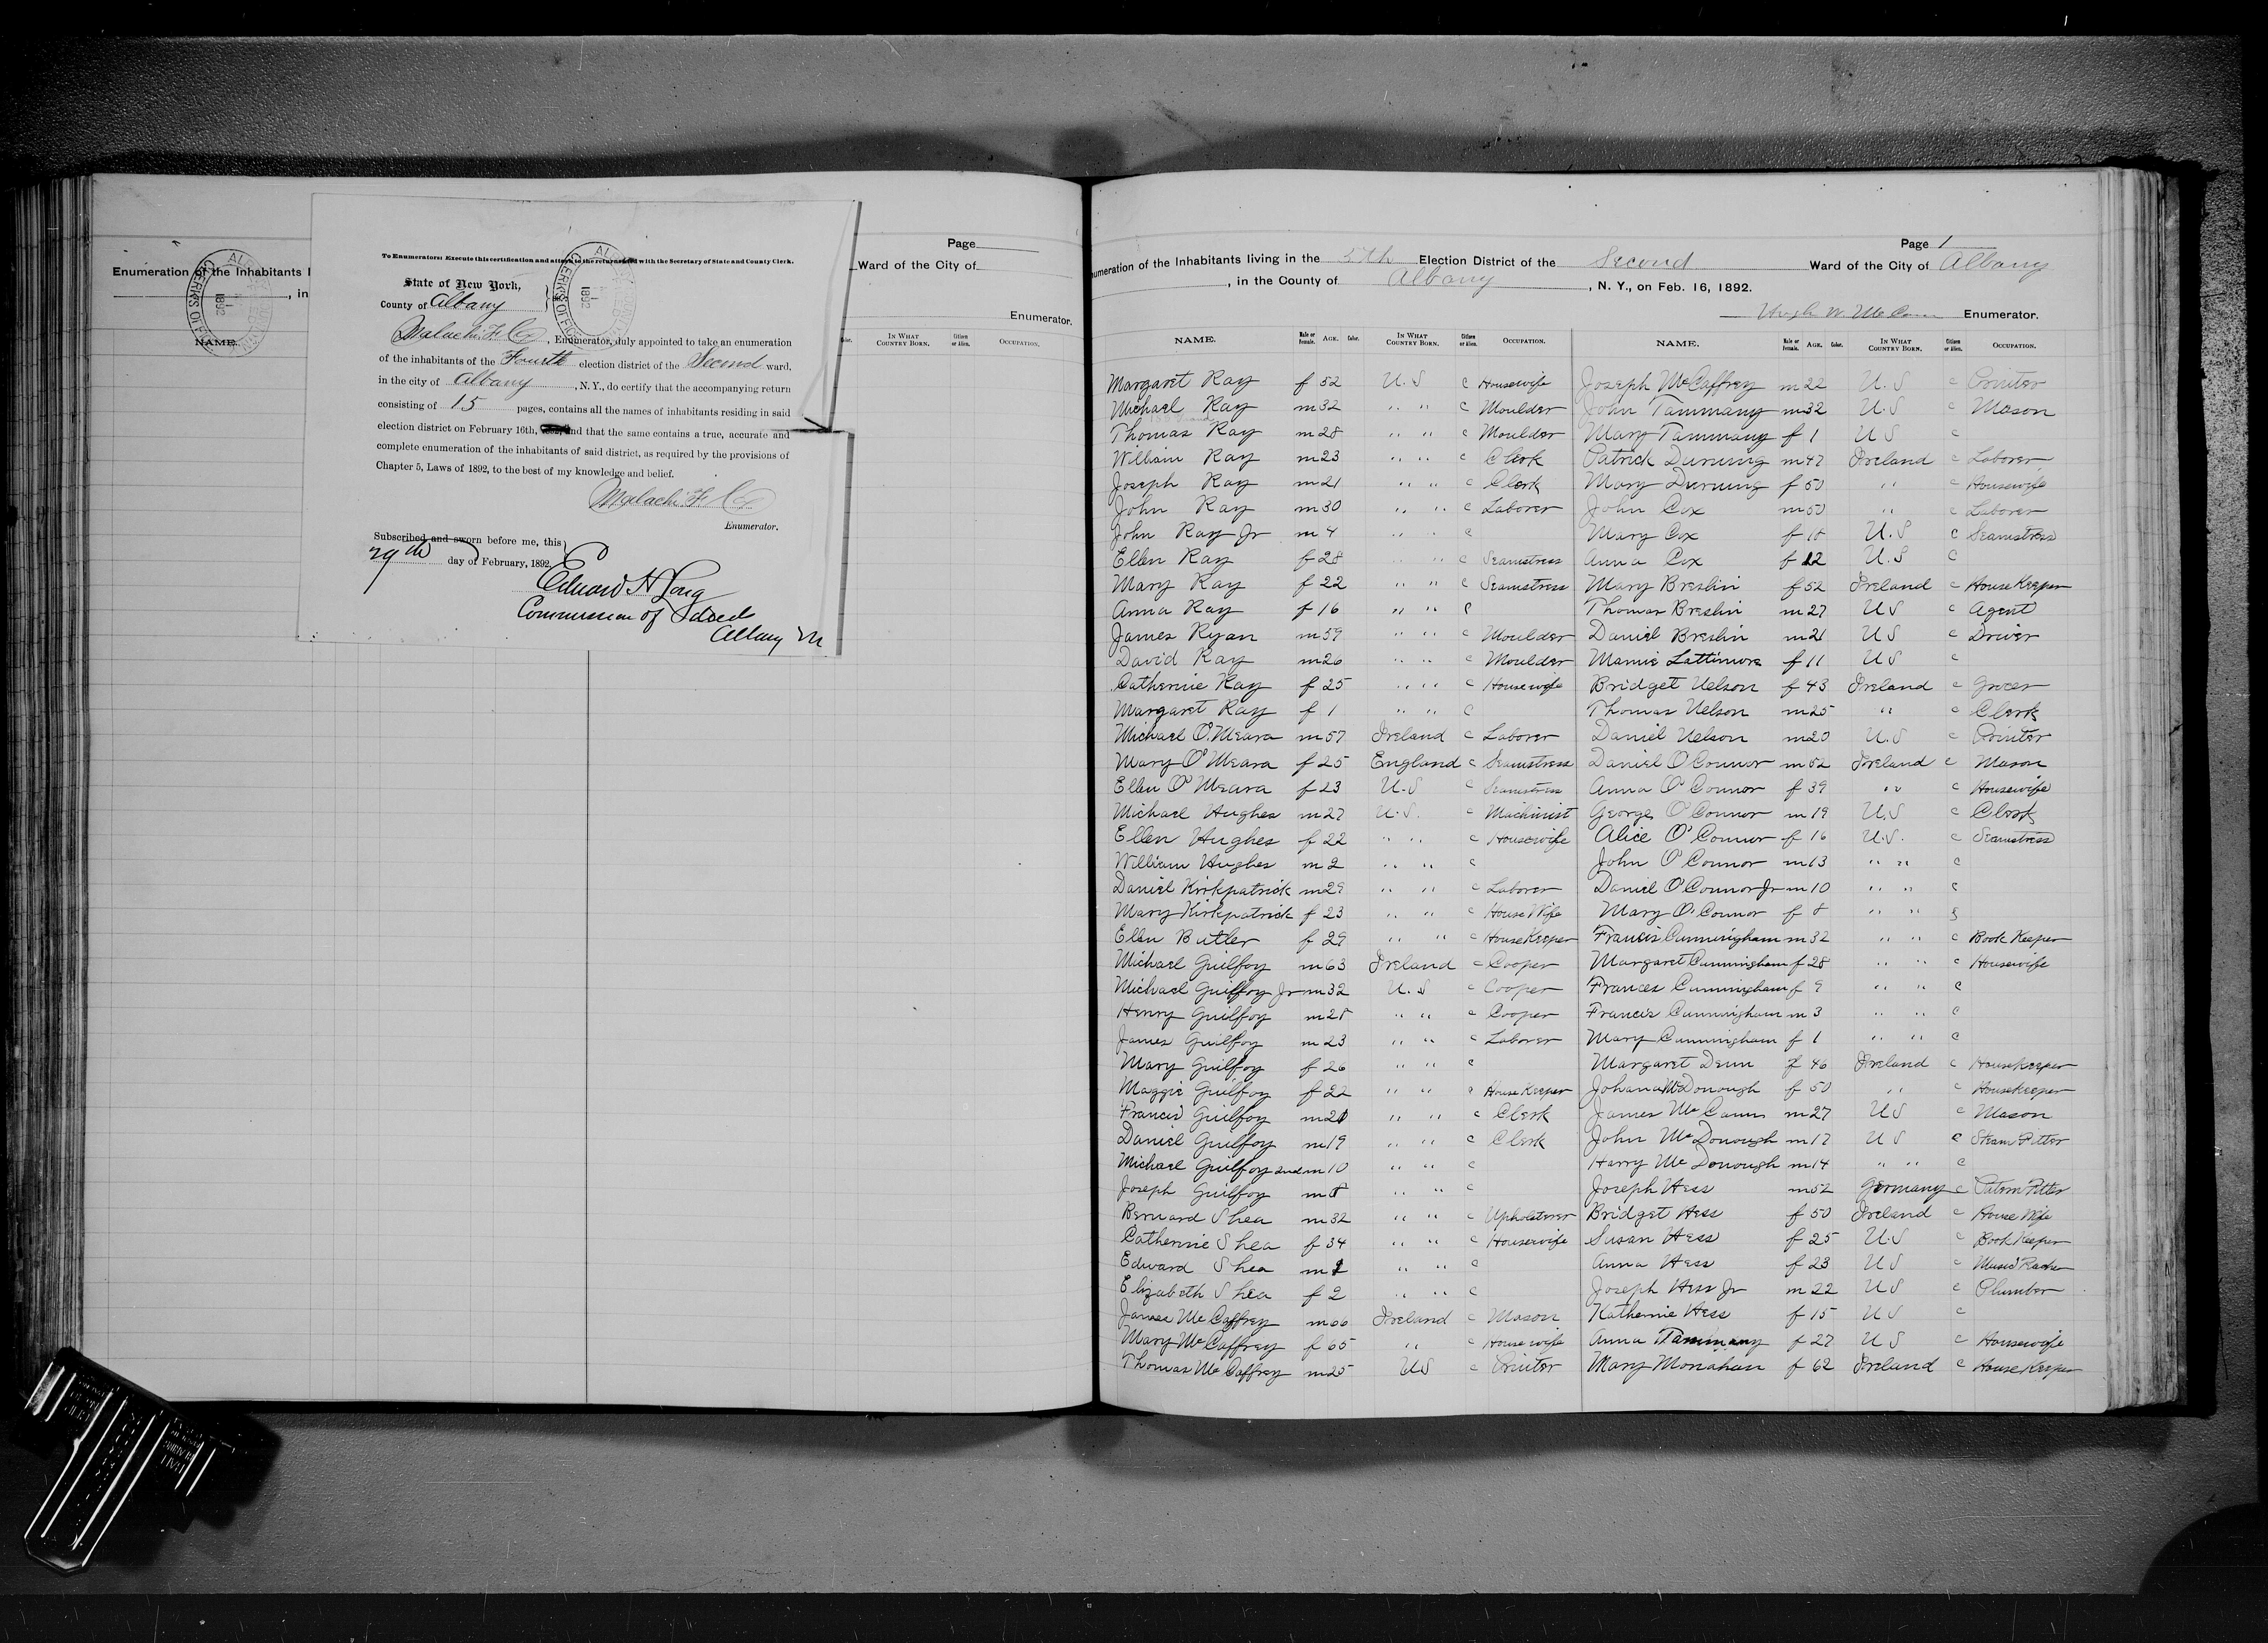 Enumeration of the Inhabitants l
, in
NAME.
CLERK'S OFFICE
1892
Page
Ward of the City of
Enumerator.
IN WHAT COUNTRY BORN. Citizen or Alien. OCCUPATION.
To Enumerators: Execute this certification and attach to the returns filed with the Secretary of State and County Clerk.
State of New York,
County of Albany
CLERK'S OFFICE
1892
Malachi F. , Enumerator, duly appointed to take an enumeration
of the inhabitants of the Fourth election district of the Second ward,
in the city of Albany , N. Y., do certify that the accompanying return
consisting of 15 pages, contains all the names of inhabitants residing in said
election district on February 16th, and that the same contains a true, accurate and
complete enumeration of the inhabitants of said district, as required by the provisions of
Chapter 5, Laws of 1892, to the best of my knowledge and belief.
Malachi F.
Enumerator.
Subscribed and sworn before me, this
29th day of February, 1892.
Edward H Long
Commission of Deeds
Albany
Page 1
umeration of the Inhabitants living in the 5th Election District of the Second Ward of the City of Albany
, in the County of Albany , N. Y., on Feb. 16, 1892.
Hugh W. McCann Enumerator.
NAME. Male or Female. AGE. Color. IN WHAT COUNTRY BORN. Citizen or Alien. OCCUPATION. NAME. Male or Female. AGE. Color. IN WHAT COUNTRY BORN. Citizen or Alien. OCCUPATION.
Margaret Ray f 52 U.S c Housewife
Michael Ray m 32 " " c Moulder
Thomas Ray m 28 " " c Moulder
William Ray m 23 " " c Clerk
Joseph Ray m 21 " " c Clerk
John Ray m 30 " " c Laborer
John Ray Jr m 4 " " c
Ellen Ray f 28 " " c Seamstress
Mary Ray f 22 " " c Seamstress
Anna Ray f 16 " " c
James Ryan m 59 " " c Moulder
David Ray m 26 " " c Moulder
Catherine Ray f 25 " " c Housewife
Margaret Ray f 1 " " c
Michael O'Meara m 57 Ireland c Laborer
Mary O'Meara f 25 England c Seamstress
Ellen O'Meara f 23 U.S c Seamstress
Michael Hughes m 27 U.S. c Machinist
Ellen Hughes f 22 " " c Housewife
William Hughes m 2 " " c
Daniel Kirkpatrick m 29 " " c Laborer
Mary Kirkpatrick f 23 " " c House Wife
Ellen Butler f 29 " " c House Keeper
Michael Guilfoy m 63 Ireland c Cooper
Michael Guilfoy Jr m 32 U.S c Cooper
Henry Guilfoy m 28 " " c Cooper
James Guilfoy m 23 " " c Laborer
Mary Guilfoy f 26 " " c
Maggie Guilfoy f 22 " " c House Keeper
Francis Guilfoy m 21 " " c Clerk
Daniel Guilfoy m 19 " " c Clerk
Michael Guilfoy 2nd m 10 " " c
Joseph Guilfoy m 8 " " c
Bernard Shea m 32 " " c Upholsterer
Catherine Shea f 34 " " c Housewife
Edward Shea m " " c
Elizabeth Shea f 2 " " c
James McCaffrey m 66 Ireland c Mason
Mary McCaffrey f 65 " c House wife
Thomas McCaffrey m 25 US c Printer
Joseph McCaffrey m 22 U.S c Printer
John Tammany m 32 U.S c Mason
Mary Tammany f 1 US c
Patrick Durning m 47 Ireland c Laborer
Mary Durning f 50 " c Housewife
John Cox m 50 " c Laborer
Mary Cox f 18 U.S c Seamstress
Anna Cox f 12 U.S c
Mary Breslin f 52 Ireland c House Keeper
Thomas Breslin m 27 US c Agent
Daniel Breslin m 21 US c Driver
Mamie Lattimore f 11 US c
Bridget Nelson f 43 Ireland c Grocer
Thomas Nelson m 25 " c Clerk
Daniel Nelson m 20 U.S c Printer
Daniel O'Connor m 52 Ireland c Mason
Anna O'Connor f 39 " c Housewife
George O'Connor m 19 U.S c Clerk
Alice O'Connor f 16 U.S. c Seamstress
John O'Connor m 13 " " c
Daniel O'Connor Jr m 10 " " c
Mary O'Connor f 8 " " c
Francis Cunningham m 32 " " c Book Keeper
Margaret Cunningham f 28 " " c Housewife
Frances Cunningham f 9 " " c
Francis Cunningham m 3 " " c
Mary Cunningham f 1 " " c
Margaret Dunn f 46 Ireland c Housekeeper
Johana McDonough f 50 " c Housekeeper
James McCann m 27 US c Mason
John McDonough m 17 US c Steam Fitter
Harry McDonough m 14 " " c
Joseph Hess m 52 Germany c Fitter
Bridget Hess f 50 Ireland c House Wife
Susan Hess f 25 U.S c Book Keeper
Anna Hess f 23 US c Music
Joseph Hess Jr m 22 US c Plumber
Katherine Hess f 15 US c
Anna Tammany f 27 US c Housewife
Mary Monahan f 62 Ireland c House Keeper